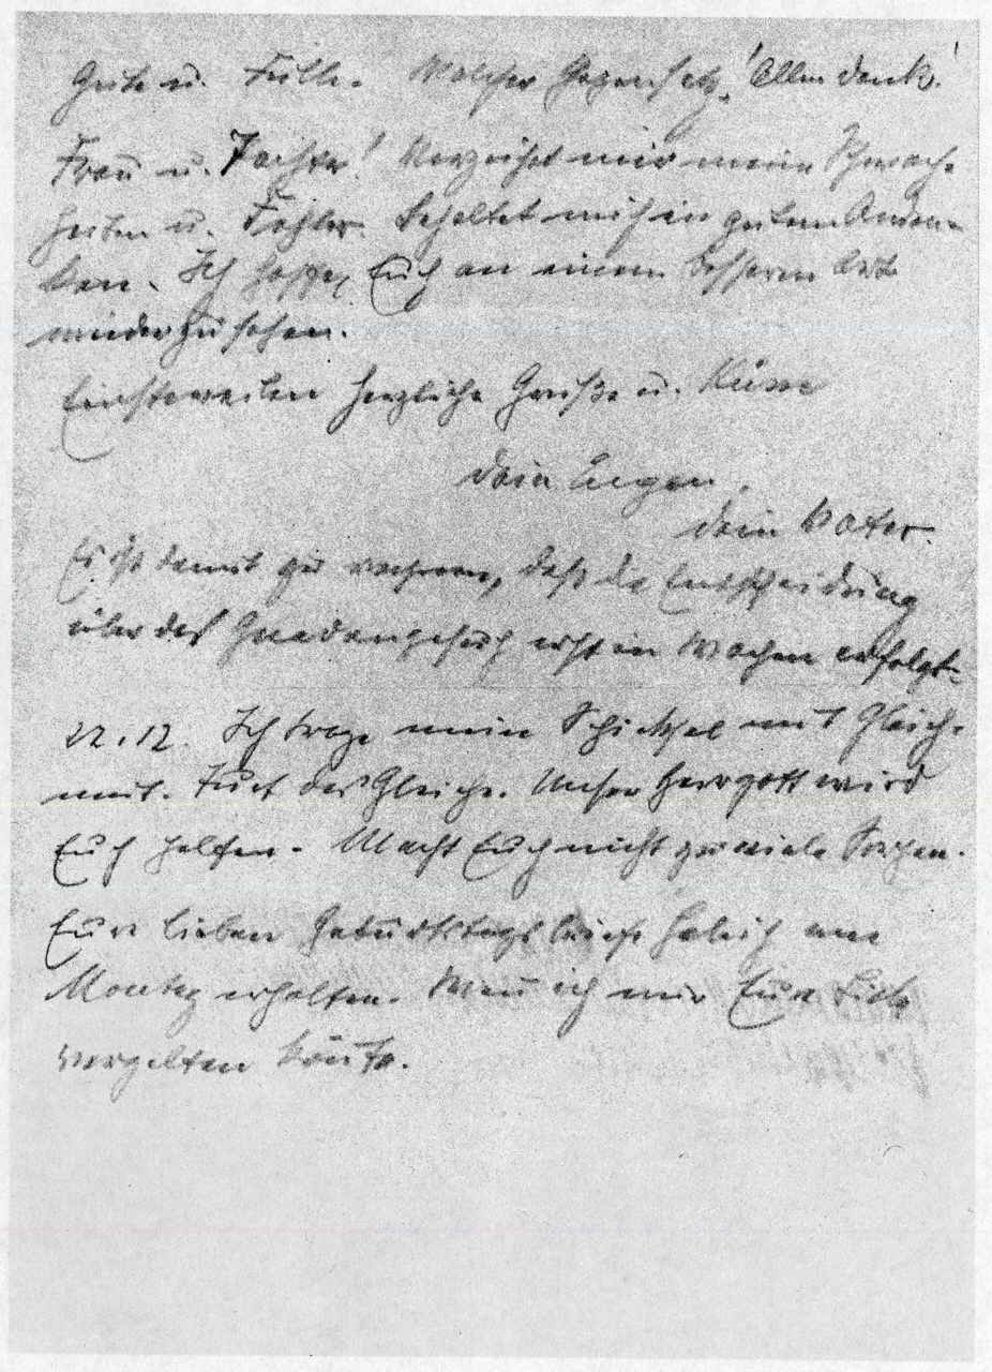 Güte u. Fülle. Welcher Gegensatz! Allen Dank!
Frau u. Tochter! Verzeihet mir meine Schwach-
heiten u. Fehler. Behaltet mich in gutem Anden-
ken. Ich hoffe, Euch an einem besseren Ort
wiederzusehen.
Einstweilen herzliche Grüße u. Küsse
Dein Eugen,
Dein Vater.
Es ist damit zu rechnen, daß die Entscheidung
über das Gnadengesuch erst in Wochen erfolgt.
22.12. Ich trage mein Schicksal mit Gleich-
mut. Tuet das Gleiche. Unser Herrgott wird
Euch helfen. Macht Euch nicht zu viele Sorgen.
Eure lieben Geburtstagsbriefe habe ich am
Montag erhalten. Wenn ich nur Eure Liebe
vergelten könnte.